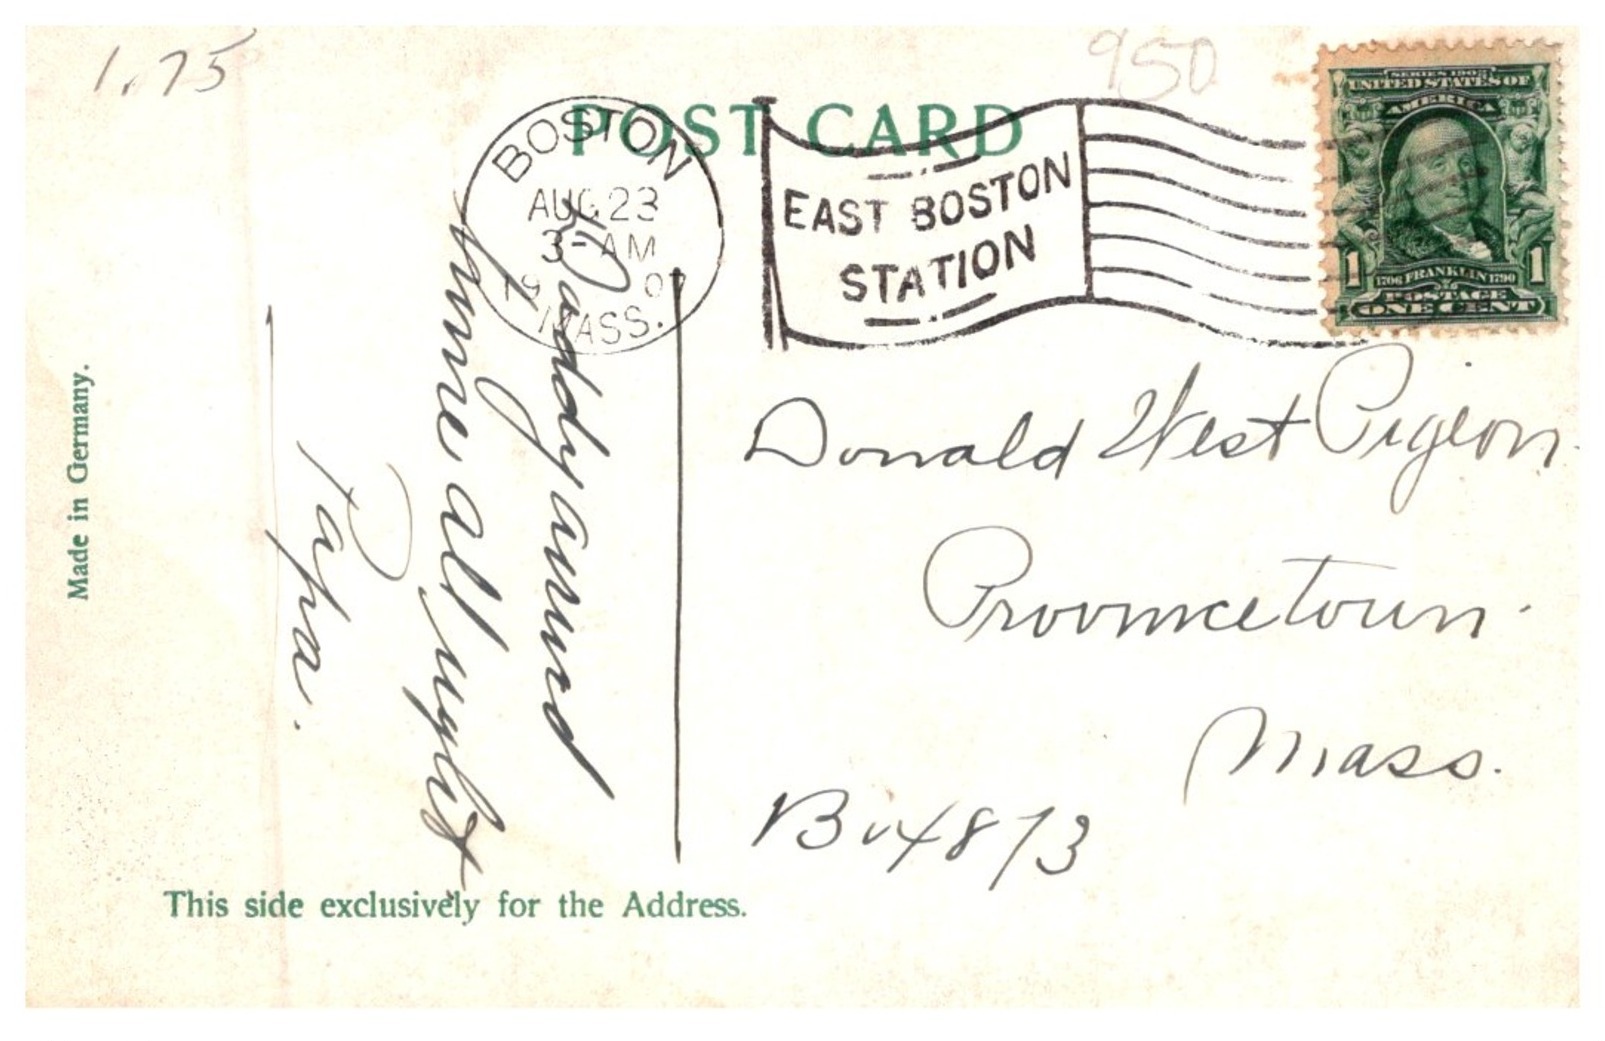 1.75
950
POST CARD
BOSTON
AUG 23
3-AM
1907
MASS.
EAST BOSTON
STATION
SERIES 1902
UNITED STATES OF
AMERICA
1 1
1706 FRANKLIN 1790
POSTAGE
ONE CENT
Daddy arrived
home all right
Papa.
Donald West Pigeon.
Provincetown.
Mass.
Bx 4873
Made in Germany.
This side exclusively for the Address.